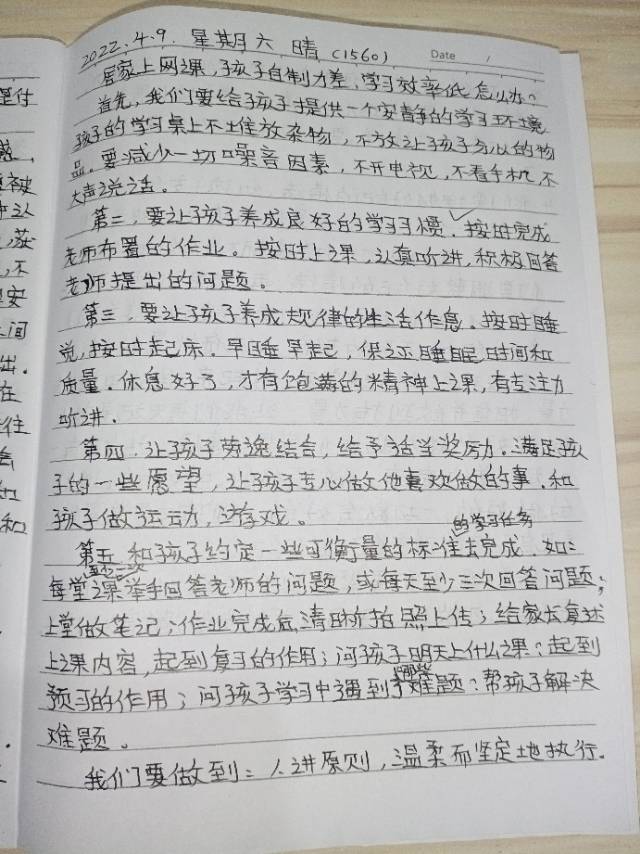 2022.4.9. 星期六 晴 (1560) Date /
居家上网课，孩子自制力差，学习效率低怎么办？
首先，我们要给孩子提供一个安静的学习环境
孩子的学习桌上不堆放杂物，不放让孩子分心的物
品。要减少一切噪音因素，不开电视，不看手机，不
大声说话。
第二，要让孩子养成良好的学习习惯，按时完成
老师布置的作业。按时上课，认真听讲，积极回答
老师提出的问题。
第三，要让孩子养成规律的生活作息。按时睡
觉，按时起床。早睡早起，保证睡眠时间和
质量，休息好了，才有饱满的精神上课，有专注力
听讲。
第四，让孩子劳逸结合，给予适当奖励。满足孩
子的一些愿望，让孩子专心做他喜欢做的事，和
孩子做运动，游戏。
的学习任务
第五，和孩子约定一些可衡量的标准去完成，如：
至少三次
每堂课举手回答老师的问题，或每天至少三次回答问题；
上堂做笔记；作业完成后，清晰拍照上传；给家长复述
上课内容，起到复习的作用；问孩子明天上什么课？起到
哪些
预习的作用；问孩子学习中遇到了难题？帮孩子解决
难题。
我们要做到：人讲原则，温柔而坚定地执行。